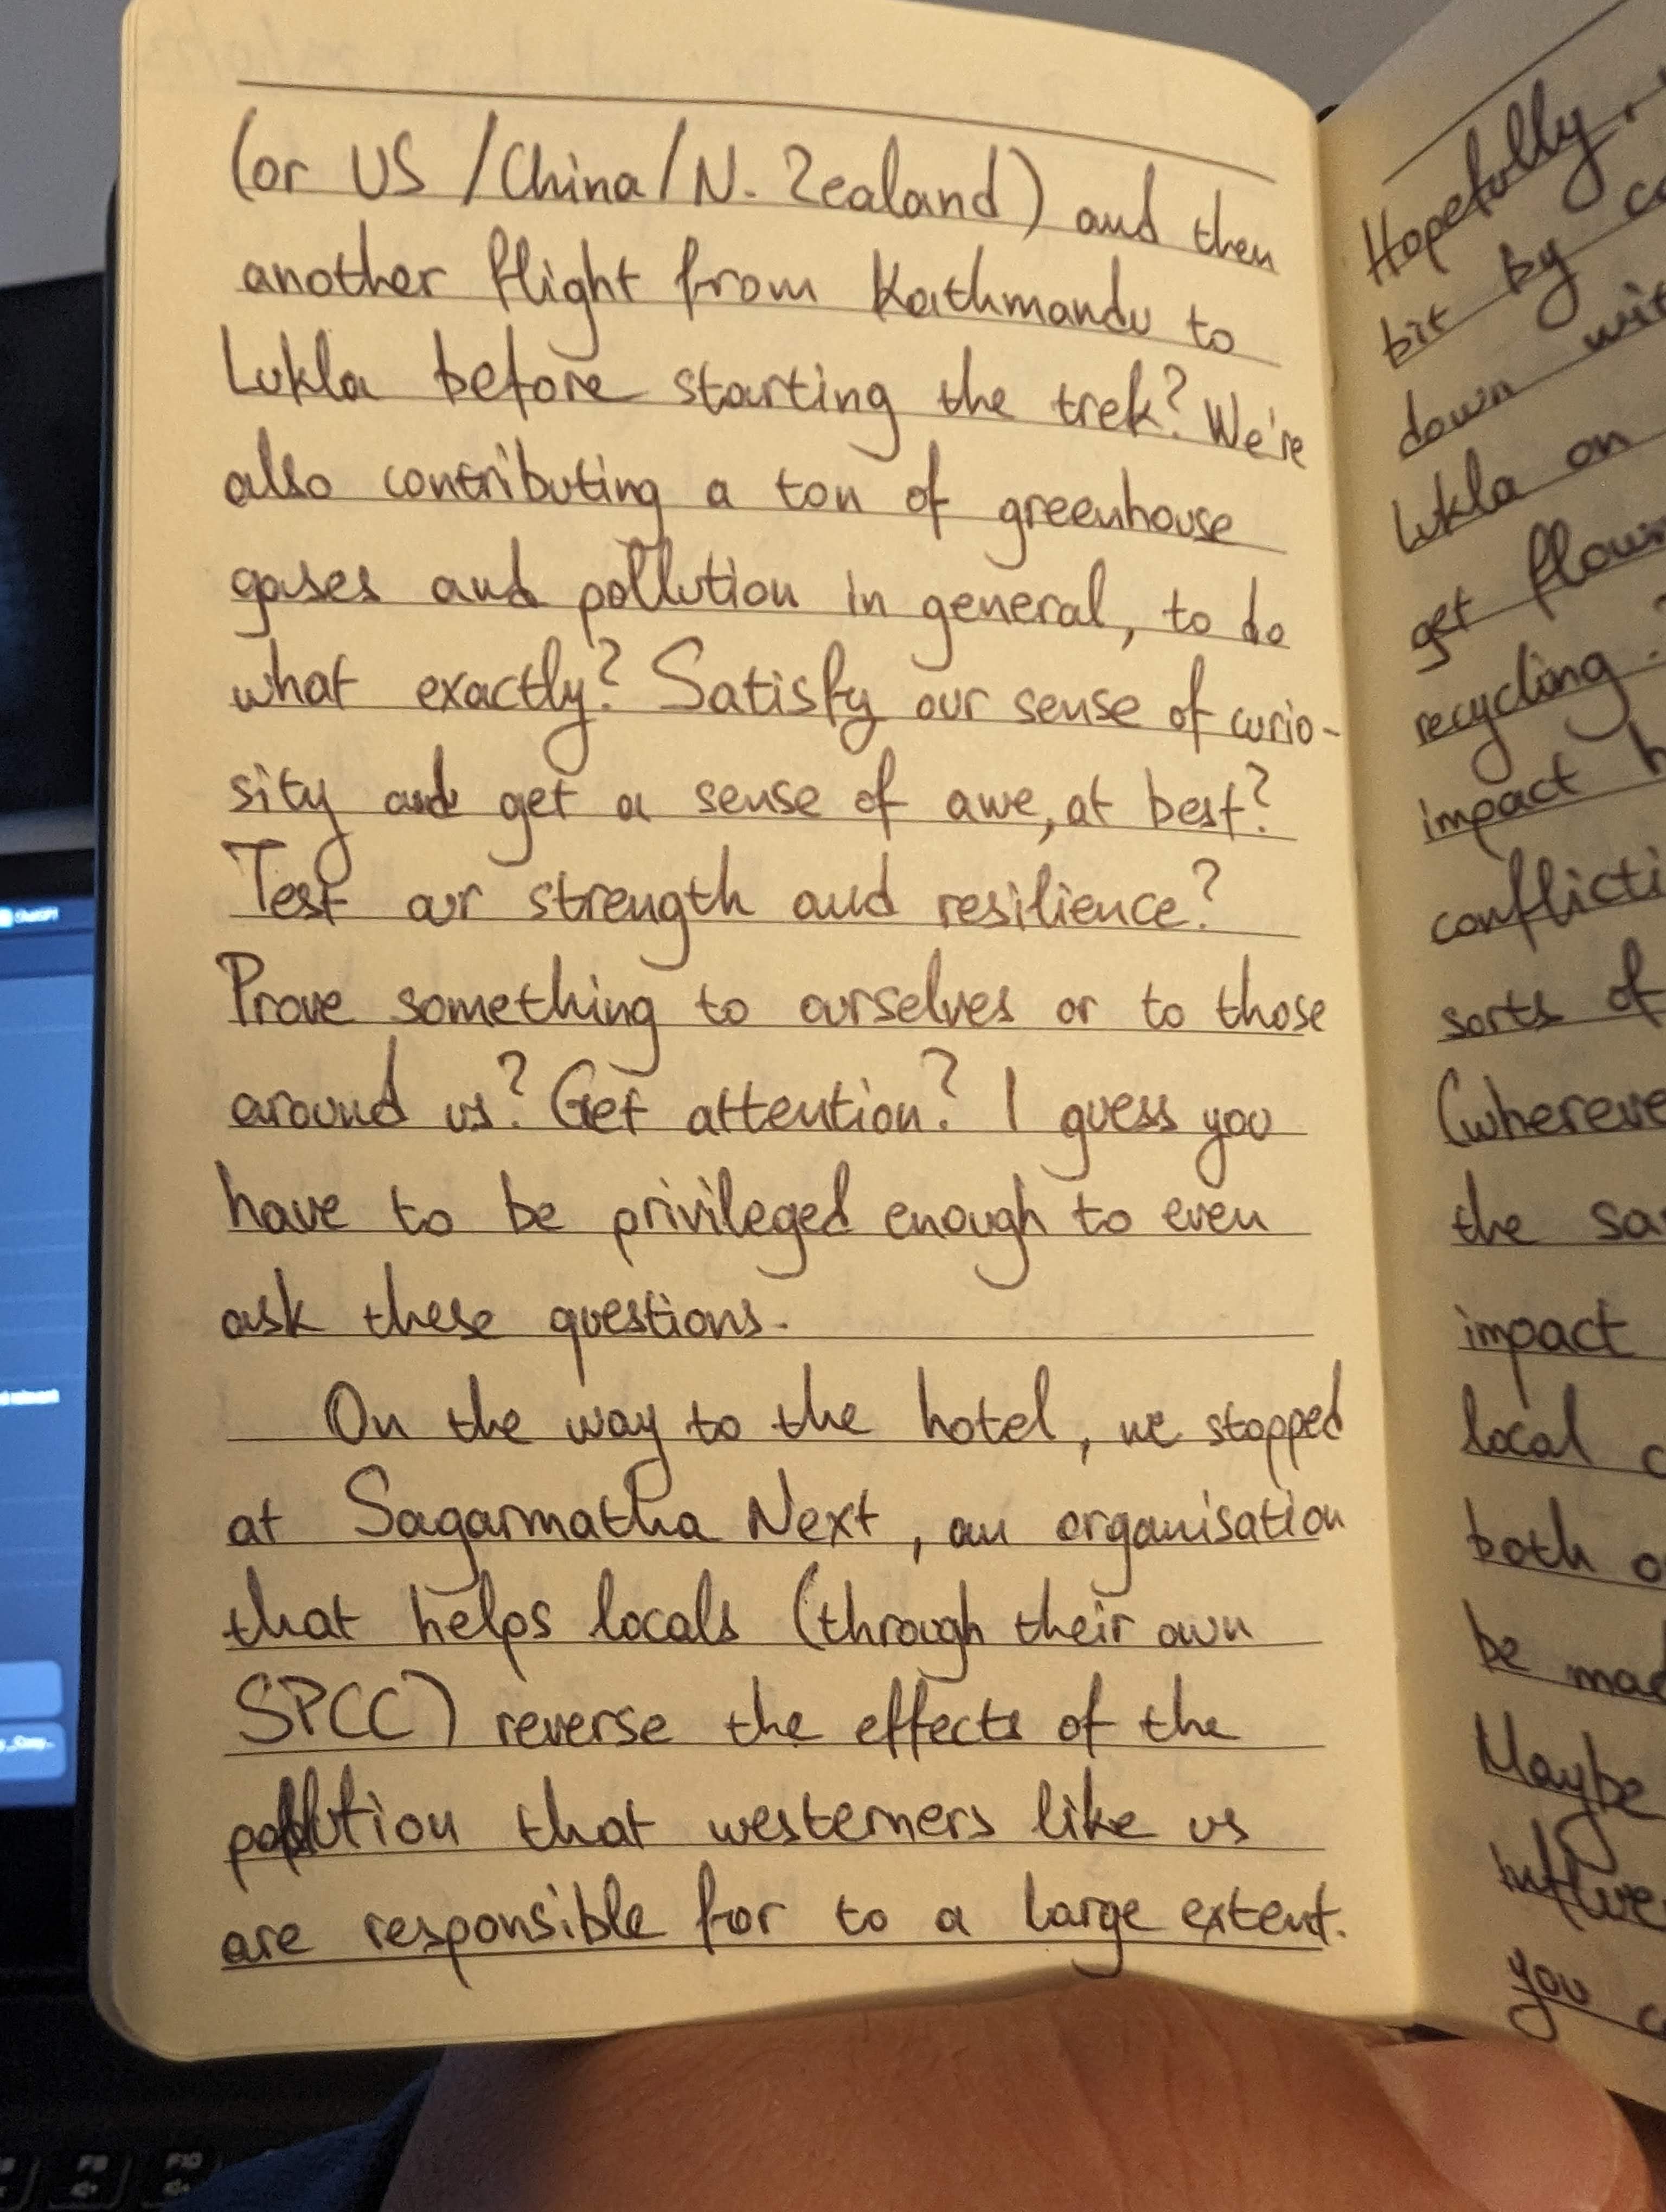 (or US / China / N. Zealand) and then
another flight from Kathmandu to
Lukla before starting the trek? We're
also contributing a ton of greenhouse
gases and pollution in general, to do
what exactly? Satisfy our sense of curio-
sity and get a sense of awe, at best?
Test our strength and resilience?
Prove something to ourselves or to those
around us? Get attention? I guess you
have to be privileged enough to even
ask these questions.
On the way to the hotel, we stopped
at Sagarmatha Next, an organisation
that helps locals (through their own
SPCC) reverse the effects of the
pollution that westerners like us
are responsible for to a large extent.
Hopefully,
bit by
down
Lukla on
get
recycling
impact
sorts of
the
impact
local
both
be
Maybe
you
ChatGPT
F9
F10